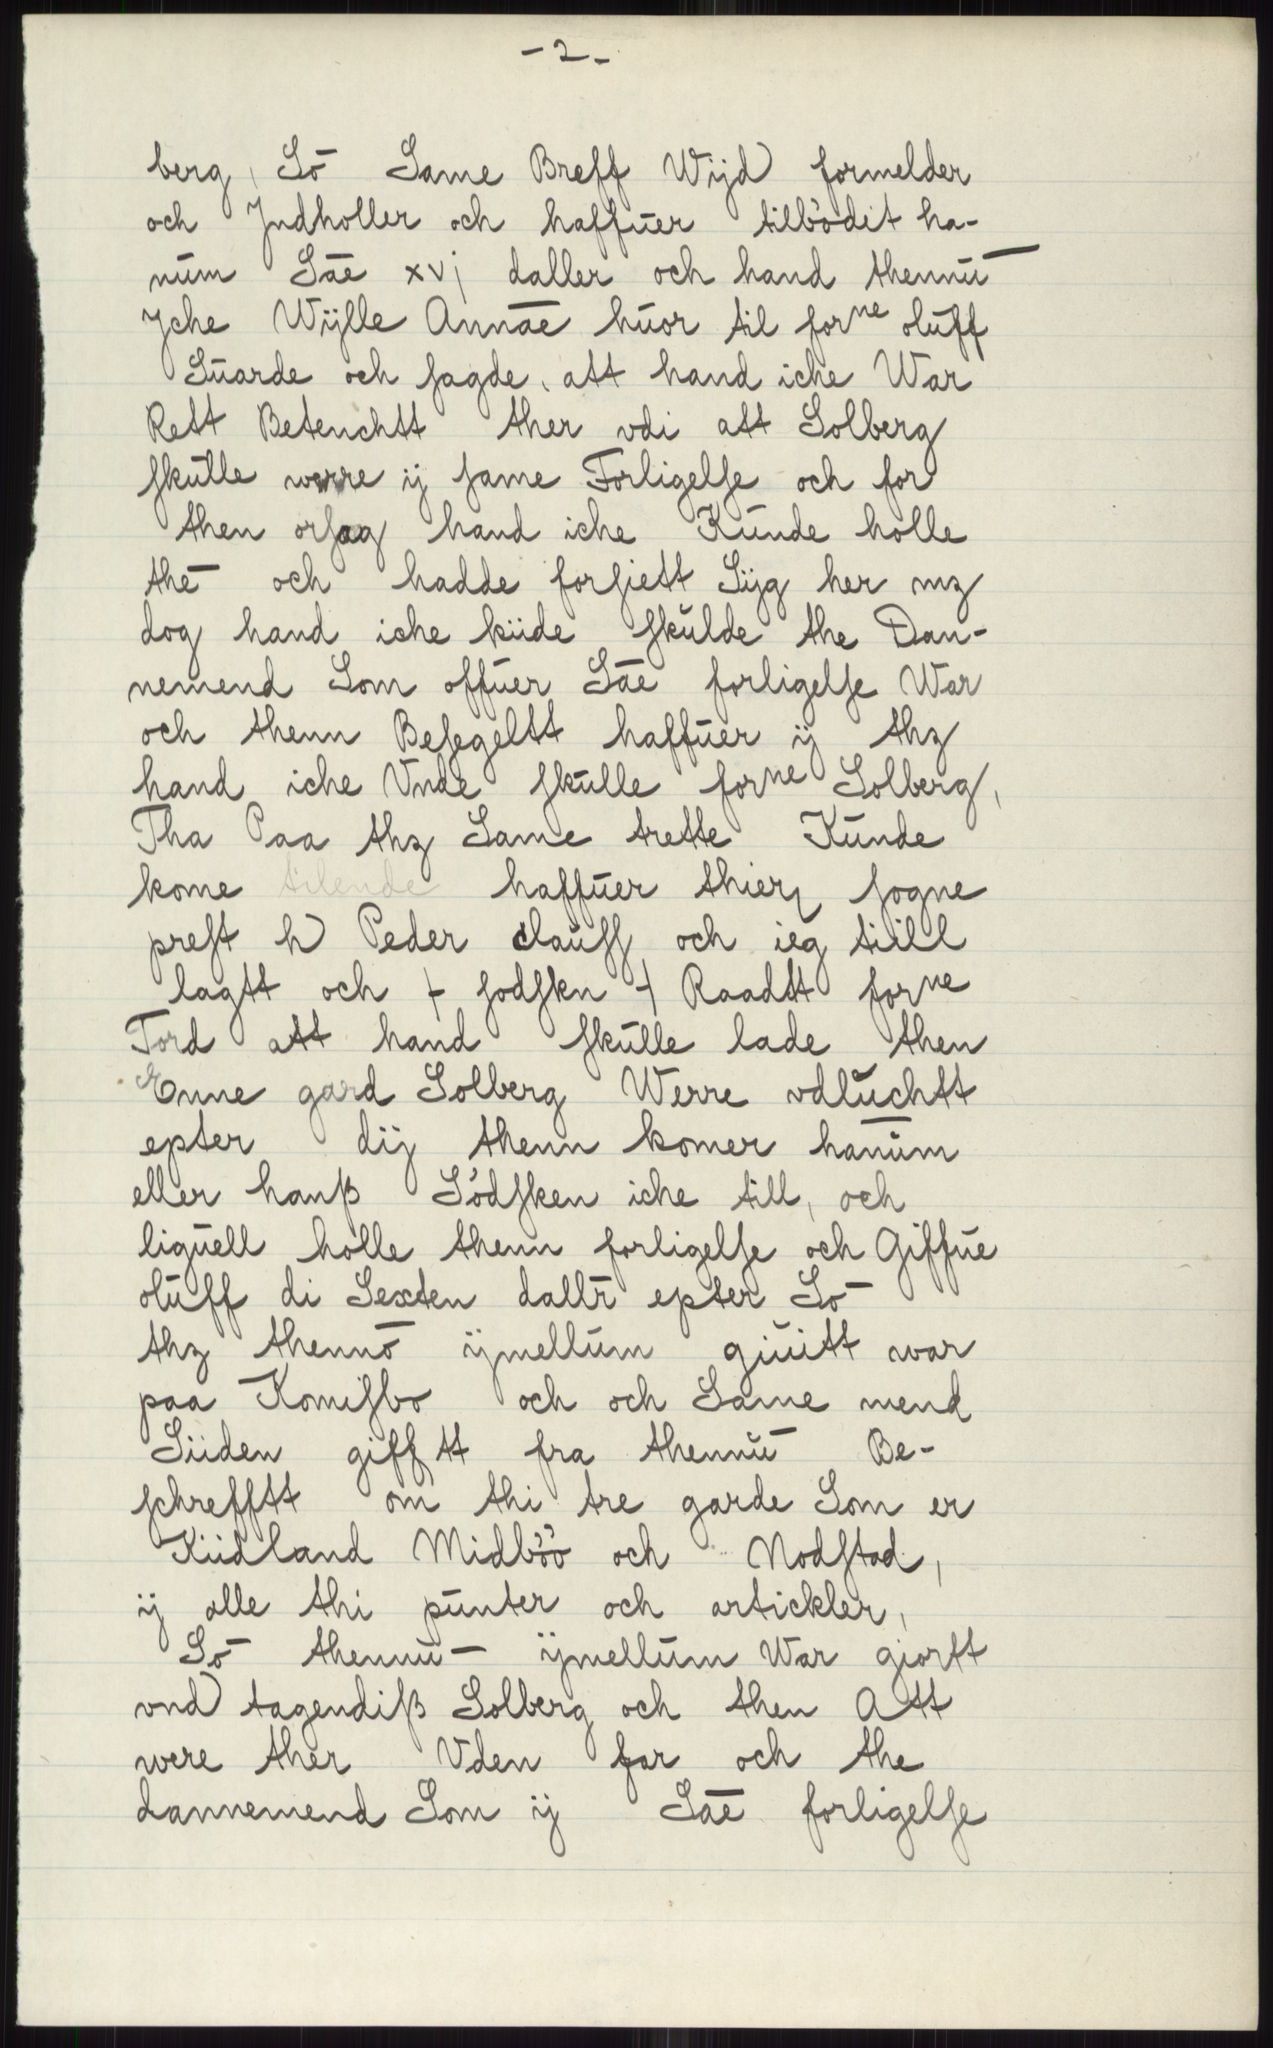 - 2 -
berg, Sō Same Breff Wijd formelder
och Jndholler och haffuer tilbödit ha-
num Sāē xvj daller och hand thennū
Jche Wÿlle Annāē huor til forne oluff
Suarde och sagde, att hand iche War
Rett Betenchtt ther vdi att Solberg
skulle werre ij same Forligelse och for
then orsag hand iche Kunde holle
thē och hadde forsiett Sijg her mz
dog hand iche kiide skulde the Dan-
nemend Som offuer Sāē forligelse War
och thenn Besegeltt haffuer ij thz
hand iche Vnde skulle forne Solberg,
Tha Paa thz Same trette Kunde
kome tilende haffuer thier sogne
prest h Peder clauss och ieg tiill
lagtt och + sodskn + Raadtt forne
Tord att hand skulle lade then
Enne gard Solberg Werre vdluchtt
epter dij thenn komer hanum
eller hanß Södsken iche till, och
liguell holle thenn forligelse och Giffue
oluff di Sexten dallr epter Sō
thz thennō ijmellum quitt war
paa Komisbo och och Same mend
Siiden gifftt fra thennū Be-
schrefftt om thi tre garde Som er
Kiidland Midböö och Nodstad,
ij alle thi punter och artickler,
Sō thennū ijmellum War giortt
vnd tagendiß Solberg och then Att
were ther Vden far och the
dannemend Som ij Sāē forligelse